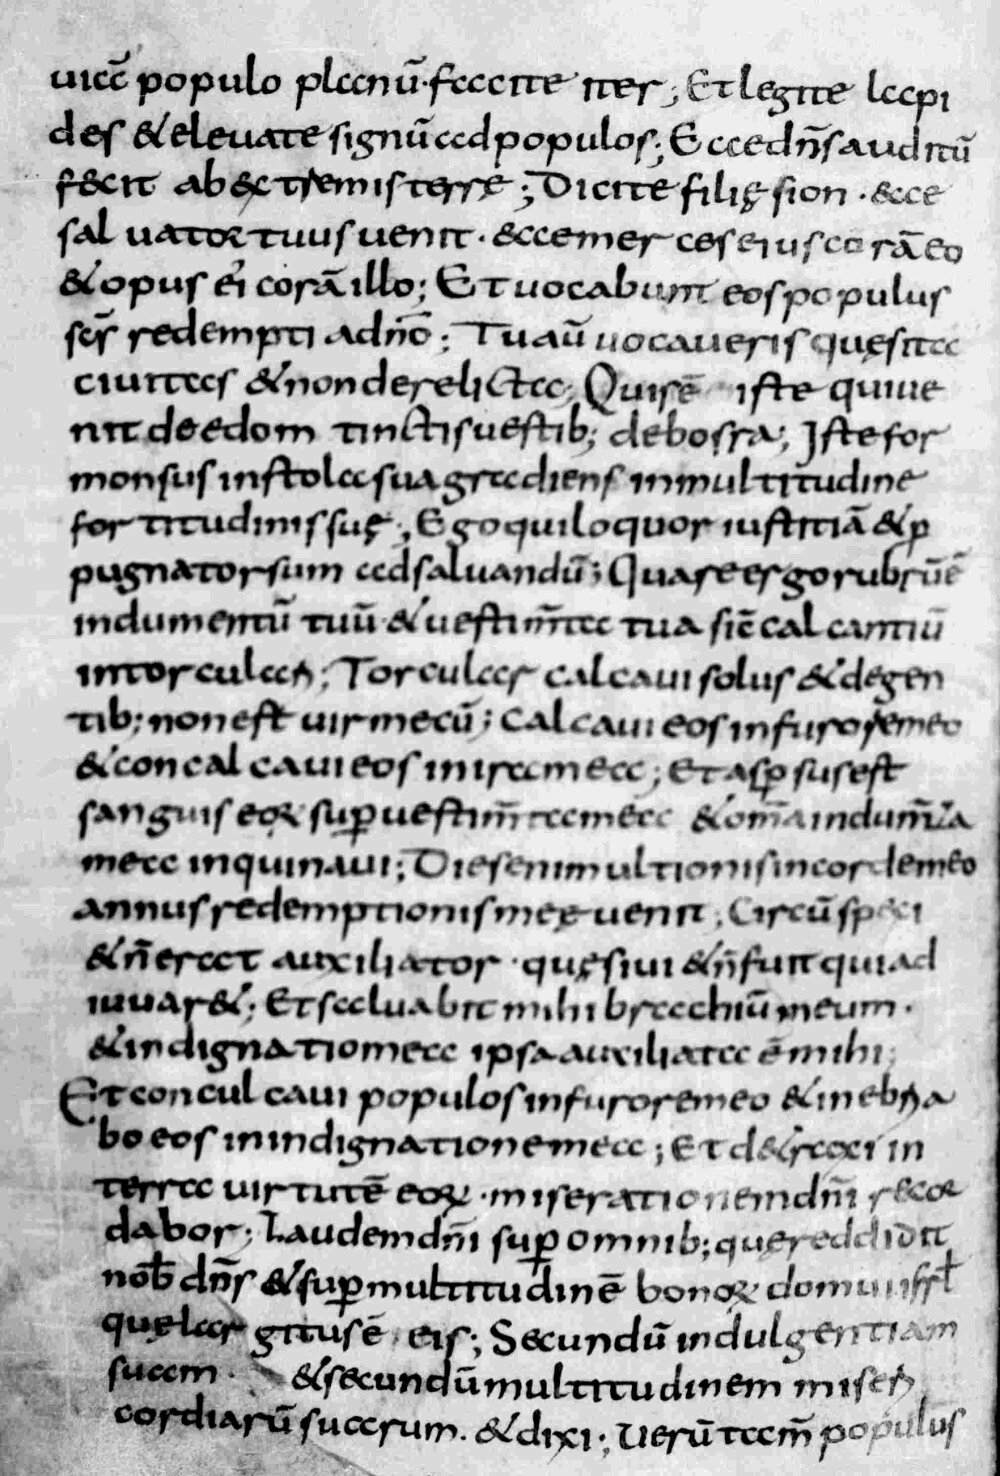 uiā populo planū· facite iter; Et legite lapi
des & eleuate signū ad populos; Ecce dn̄s auditū
fecit ab extremis terrę; Dicite filię sion · ecce
saluator tuus uenit · ecce merces eius corā eo
& opus ei corā illo; Et uocabunt eos populus
scs̄ redempti a dn̄o; Tu aū uocaueris quęsita
ciuitas & non derelicta; Quis ē iste qui ue
nit de edom tinctis uestib; de bosra; Iste for
monsus in stola sua gradiens in multitudine
fortitudinis suę; Ego qui loquor iustitiā & ꝓ
pugnator sum ad saluandū; Quare ergo rubrū ē
indumentū tuū· & uestim̄ta tua sic̄ calcantiū
in torculari; Torcular calcaui solus & de gen
tib; non est uir mecū; Calcaui eos in furore meo
& conculcaui eos in ira mea; Et aspersus est
sanguis eoꝝ suꝑ uestim̄ta mea & om̄a indum̄ta
mea inquinaui; Dies enim ultionis in corde meo
annus redemptionis meę uenit; Circūspexi
& n̄ erat auxiliator · quęsiui & n̄ fuit qui ad
iuuar&; Et saluabit mihi brachiū meum ·
& indignatio mea ipsa auxiliata ē mihi;
Et conculcaui populos in furore meo & inebria
bo eos in indignatione mea; Et detraxi in
terra uirtutē eoꝝ · miserationem dn̄i recor
dabor; Laudem dn̄i suꝑ omnib; quę reddidit
nob̄ dn̄s & suꝑ multitudinē bonoꝝ domui isrl̄
quę largitus ē eis; Secundū indulgentiam
suam · & secundū multitudinem miseri
cordiarū suarum · & dixi; Uerū tam̄ populus